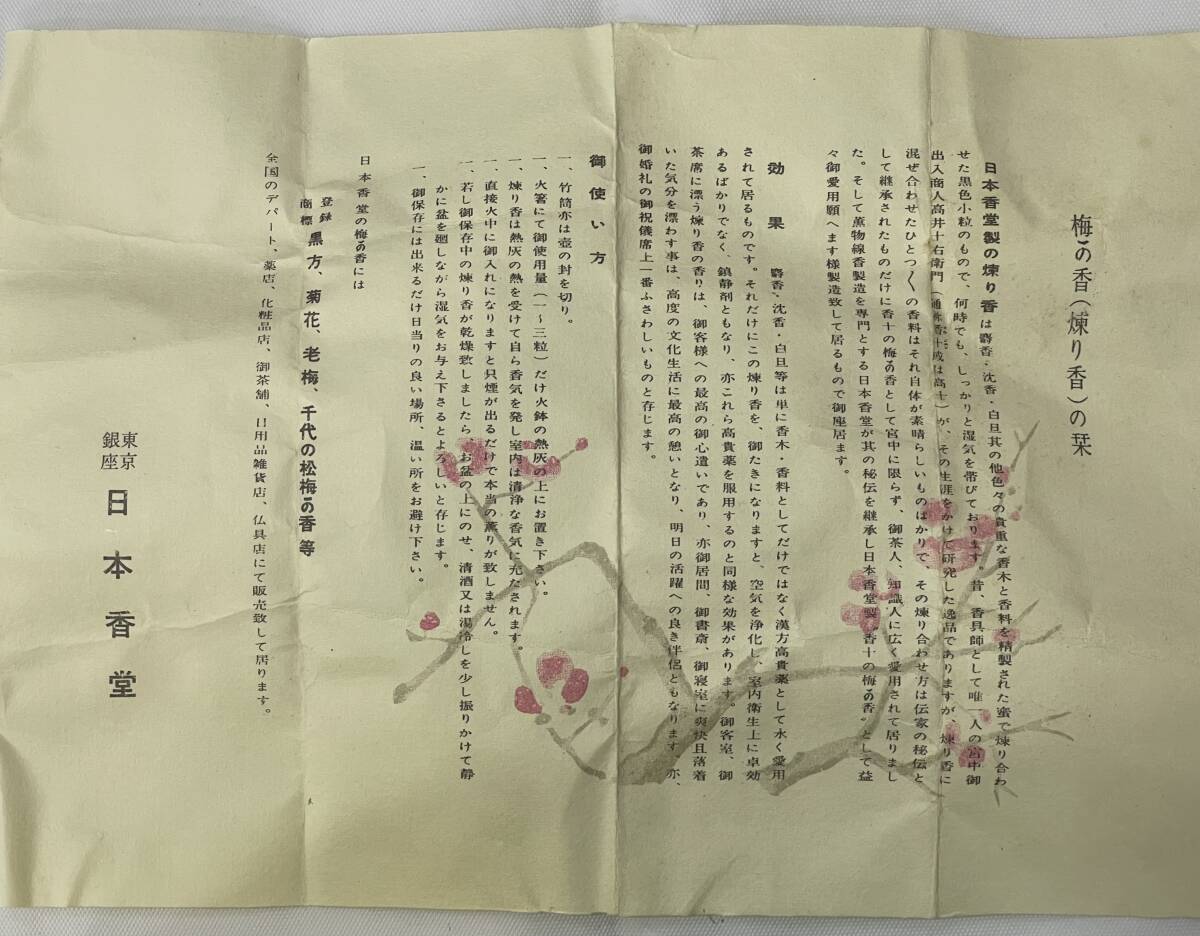 梅の香(煉り香)の栞
日本香堂製の煉り香は麝香・沈香・白旦其の他色々の貴重な香木と香料を精製された蜜で煉り合わ
せた黒色小粒のもので、何時でも、しっかりと湿気を帯びております。昔、香具師として唯一人の宮中御
出入商人高井十右衛門(通称香十或は高十)が、その生涯をかけて研究した逸品でありますが、煉り香に
混ぜ合わせたひとつ〱の香料はそれ自体が素晴らしいものばかりで、その煉り合わせ方は伝家の秘伝と
して継承されたものだけに香十の梅の香として宮中に限らず、御茶人、知識人に広く愛用されて居りまし
た。そして薫物線香製造を専門とする日本香堂が其の秘伝を継承し日本香堂製〝香十の梅の香〟として益
々御愛用願へます様製造致して居るもので御座居ます。
効果 麝香・沈香・白旦等は単に香木・香料としてだけではなく漢方高貴薬として永く愛用
されて居るものです。それだけにこの煉り香を、御たきになりますと、空気を浄化し、室内衛生上に卓効
あるばかりでなく、鎮静剤ともなり、亦これら高貴薬を服用するのと同様な効果があります。御客室、御
茶席に漂う煉り香の香りは、御客様への最高の御心遣いであり、亦御居間、御書斎、御寝室に爽快且落着
いた気分を漂わす事は、高度の文化生活に最高の憩いとなり、明日の活躍への良き伴侶ともなります、亦、
御婚礼の御祝儀席上一番ふさわしいものと存じます。
御使い方
一、竹筒亦は壺の封を切り。
一、火箸にて御使用量(一~三粒)だけ火鉢の熱灰の上にお置き下さい。
一、煉り香は熱灰の熱を受けて自ら香気を発し室内は清浄な香気に充たされます。
一、直接火中に御入れになりますと只煙が出るだけで本当の薫りが致しません。
一、若し御保存中の煉り香が乾燥致しましたら、お盆の上にのせ、清酒又は湯冷しを少し振りかけて静
かに盆を廻しながら湿気をお与え下さるとよろしいと存じます。
一、御保存には出来るだけ日当りの良い場所、温い所をお避け下さい。
日本香堂の梅の香には
登録商標 黒方、菊花、老梅、千代の松梅の香等
全国のデパート、薬店、化粧品店、御茶舗、日用品雑貨店、仏具店にて販売致して居ります。
東京銀座 日本香堂